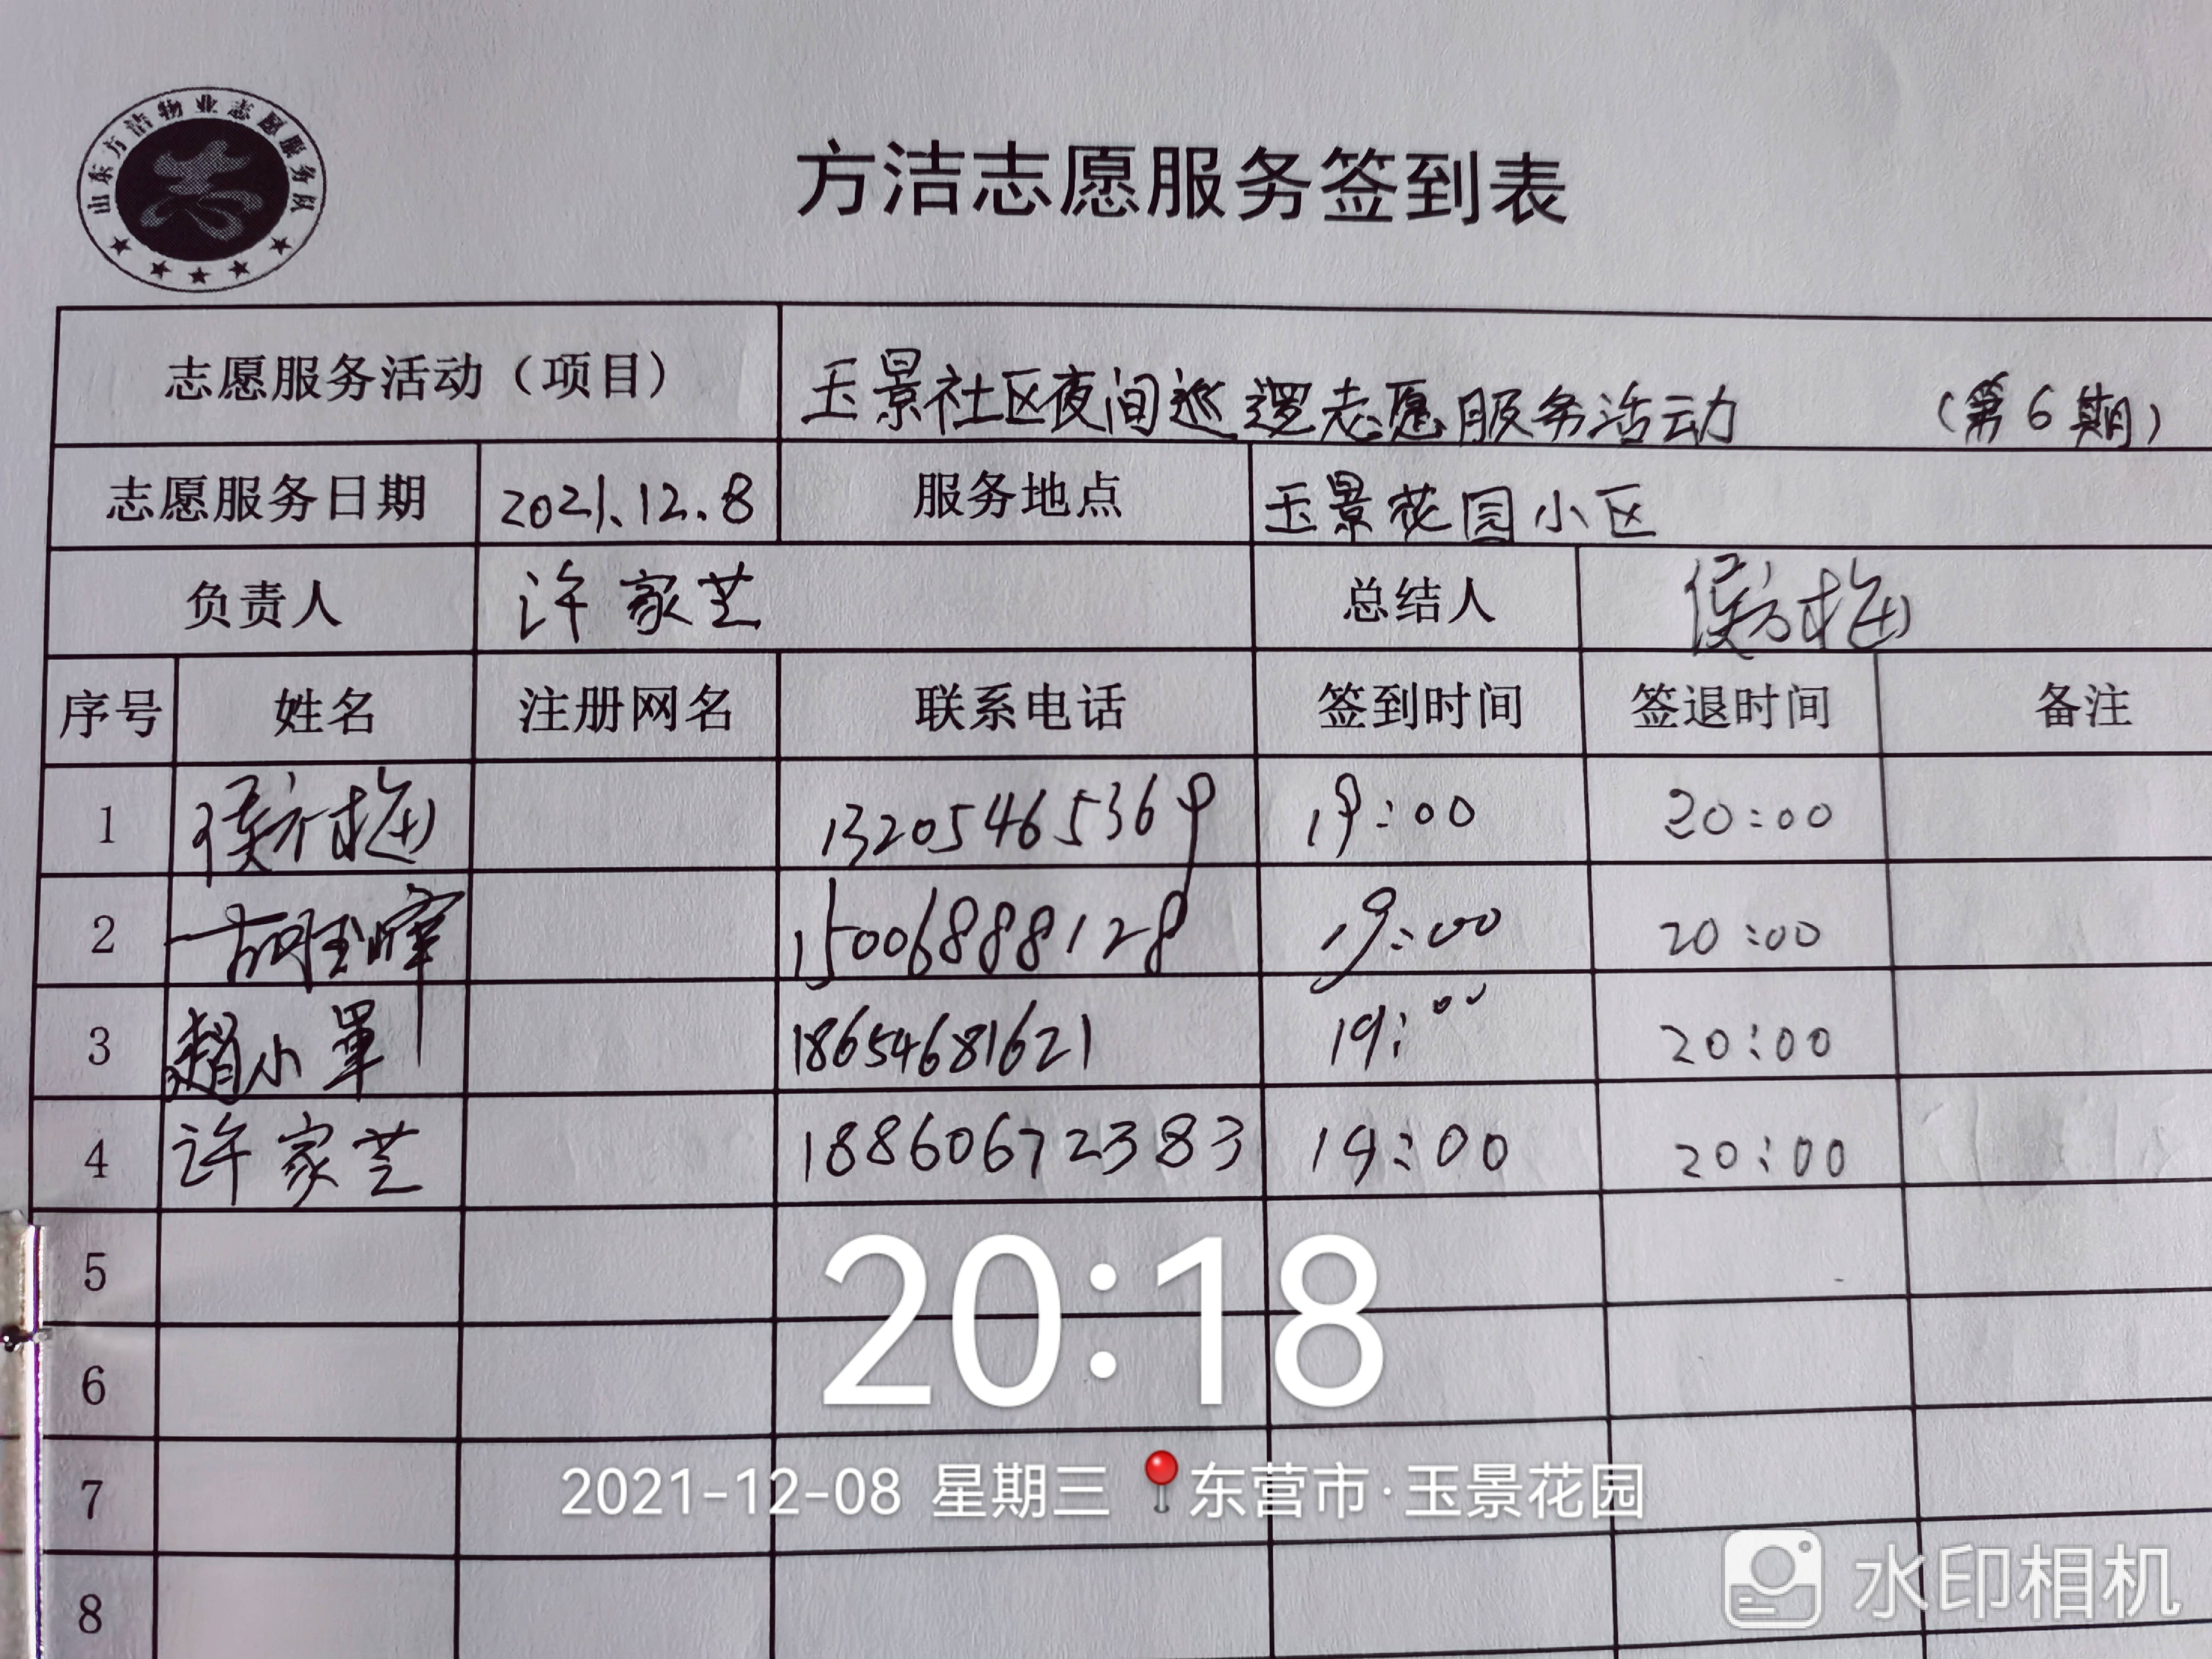 山东方洁物业志愿服务队
方洁志愿服务签到表
志愿服务活动（项目） 玉景社区夜间巡逻志愿服务活动 （第6期）
志愿服务日期 2021.12.8 服务地点 玉景花园小区
负责人 许家芝 总结人 侯方梅
序号 姓名 注册网名 联系电话 签到时间 签退时间 备注
1 侯方梅 13205465369 19:00 20:00
2 15006888128 19:00 20:00
3 赵小军 18654681621 19:00 20:00
4 许家芝 18860672383 19:00 20:00
5
20:18
6
7
2021-12-08 星期三 东营市·玉景花园
水印相机
8